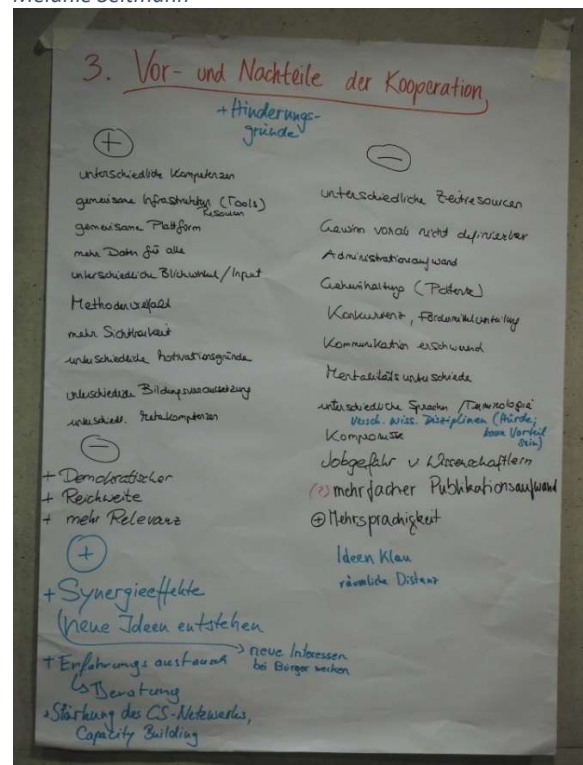 Melanie Seltmann
3. Vor- und Nachteile der Kooperation
+ Hinderungs-
gründe
+
unterschiedliche Kompetenzen
gemeinsame Infrastruktur (Tools)
Resourcen
gemeinsame Plattform
mehr Daten für alle
unterschiedliche Blickwinkel / Input
Methodenvielfalt
mehr Sichtbarkeit
unterschiedliche Motivationsgründe
unterschiedliche Bildungsvoraussetzung
unterschiedl. Metakompetenzen
-
+ Demokratischer
+ Reichweite
+ mehr Relevanz
+
+ Synergieeffekte
(neue Ideen entstehen
→ neue Interessen
bei Bürger wecken
+ Erfahrungsaustausch
↳ Beratung
+ Stärkung des CS-Netzwerks,
Capacity Building
-
unterschiedliche Zeitresourcen
Gewinn vorab nicht definierbar
Administrationsaufwand
Geheimhaltung (Patente)
Konkurrenz, Fördermittelverteilung
Kommunikation erschwerend
Mentalitätsunterschiede
unterschiedliche Sprachen / Terminologie
versch. wiss. Disziplinen (Hürde;
kann Vorteil
sein)
Kompromisse
Jobgefahr v Wissenschaftlern
(?) mehrfacher Publikationsaufwand
⊕ Mehrsprachigkeit
Ideen Klau
räumliche Distanz